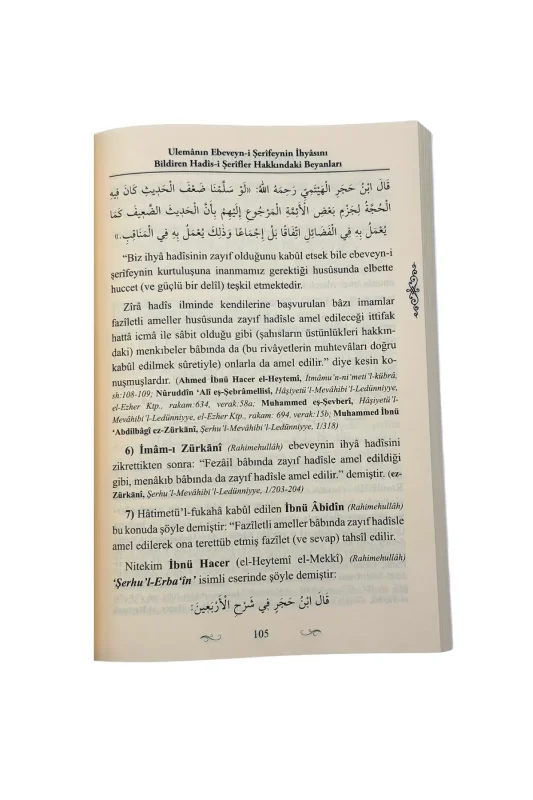 Ulemânın Ebeveyn-i Şerîfeynin İhyâsını
Bildiren Hadîs-i Şerîfler Hakkındaki Beyanları
قَالَ ابْنُ حَجَرٍ الْهَيْتَمِيُّ رَحِمَهُ اللهُ: «لَوْ سَلَّمْنَا ضَعْفَ الْحَدِيثِ كَانَ فِيهِ
الْحُجَّةُ لِجَزْمِ بَعْضِ الْأَئِمَّةِ الْمَرْجُوعِ إِلَيْهِمْ بِأَنَّ الْحَدِيثَ الضَّعِيفَ كَمَا
يُعْمَلُ بِهِ فِي الْفَضَائِلِ اتِّفَاقًا بَلْ إِجْمَاعًا وَكَذَلِكَ يُعْمَلُ بِهِ فِي الْمَنَاقِبِ.»
“Biz ihyâ hadîsinin zayıf olduğunu kabûl etsek bile ebeveyn-i
şerîfeynin kurtuluşuna inanmamız gerektiği husûsunda elbette
huccet (ve güçlü bir delîl) teşkil etmektedir.
Zîrâ hadîs ilminde kendilerine başvurulan bâzı imamlar
fazîletli ameller husûsunda zayıf hadîsle amel edileceği ittifak
hattâ icmâ ile sâbit olduğu gibi (şahısların üstünlükleri hakkın-
daki) menkıbeler bâbında da (bu rivâyetlerin muhtevâları doğru
kabûl edilmek sûretiyle) onlarla da amel edilir.” diye kesin ko-
nuşmuşlardır. (Ahmed İbnü Hacer el-Heytemî, İtmâmu’n-ni’meti’l-kübrâ,
sh:108-109; Nûruddîn ‘Alî eş-Şebrâmellisî, Hâşiyetü’l-Mevâhibi’l-Ledünniyye,
el-Ezher Ktp., rakam:634, verak:58a, Muhammed eş-Şevberî, Hâşiyetü’l-
Mevâhibi’l-Ledünniyye, el-Ezher Ktp., rakam: 694, verak:15b; Muhammed İbnü
‘Abdilbâgî ez-Zürkânî, Şerhu’l-Mevâhibi’l-Ledünniyye, 1/318)
6) İmâm-ı Zürkânî (Rahimehullâh) ebeveynin ihyâ hadîsini
zikrettikten sonra: “Fezâil bâbında zayıf hadîsle amel edildiği
gibi, menâkıb bâbında da zayıf hadîsle amel edilir.” demiştir. (ez-
Zürkânî, Şerhu’l-Mevâhibi’l-Ledünniyye, 1/203-204)
7) Hâtimetü’l-fukahâ kabûl edilen İbnü Âbidîn (Rahimehullâh)
bu konuda şöyle demiştir: “Fazîletli ameller bâbında zayıf hadîsle
amel edilerek ona terettüb etmiş fazîlet (ve sevap) tahsîl edilir.
Nitekim İbnü Hacer (el-Heytemî el-Mekkî) (Rahimehullâh)
‘Şerhu’l-Erba‘în’ isimli eserinde şöyle demiştir:
قَالَ ابْنُ حَجَرٍ فِي شَرْحِ الْأَرْبَعِينَ:
105